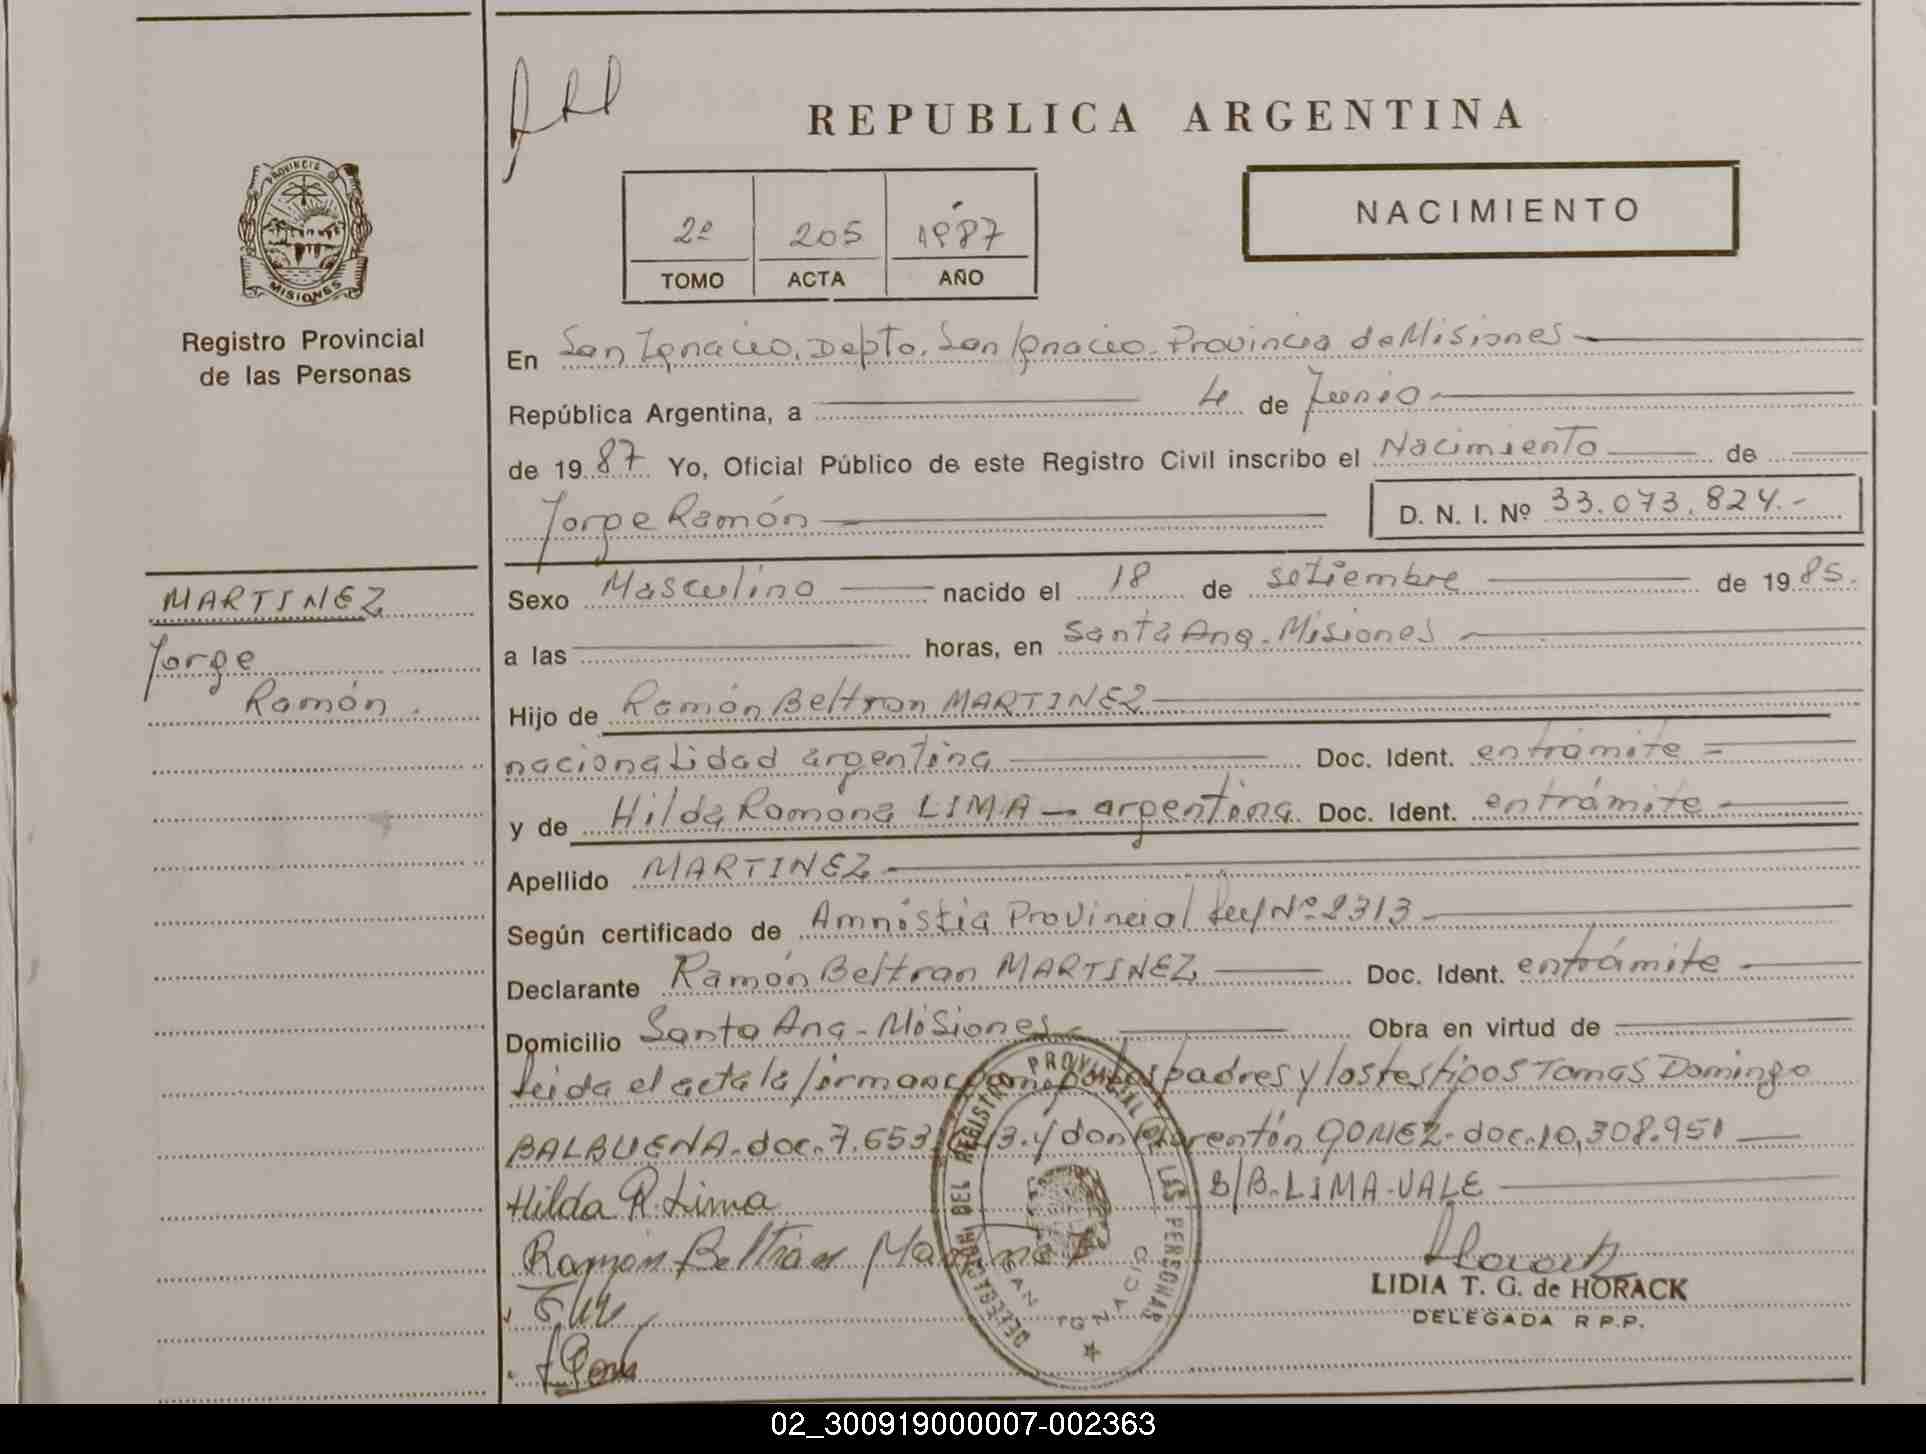 REPUBLICA ARGENTINA
PROVINCIA D
MISIONES
Registro Provincial
de las Personas
2º 205 1987
TOMO ACTA AÑO
NACIMIENTO
En San Ignacio, Depto. San Ignacio. Provincia de Misiones
República Argentina, a 4 de Junio
de 1987 Yo, Oficial Público de este Registro Civil inscribo el Nacimiento de
Jorge Ramón
D. N. I. Nº 33.073.824.-
MARTINEZ
Jorge
Ramón.
Sexo Masculino nacido el 18 de setiembre de 1985.
a las horas, en Santa Ana - Misiones
Hijo de Ramón Beltran MARTINEZ
nacionalidad argentina Doc. Ident. en trámite =
y de Hilda Ramona LIMA - argentina. Doc. Ident. en trámite -
Apellido MARTINEZ
Según certificado de Amnistia Provincial Ley Nº 2313
Declarante Ramón Beltran MARTINEZ Doc. Ident. en trámite
Domicilio Santa Ana - Misiones Obra en virtud de
Leida el acta la firman padres y los testigos Tomas Domingo
BALBUENA. doc. 7.653 3. y don GOMEZ - doc. 10,308.951
Hilda R. Lima S/B. LIMA-VALE
Ramón Beltrán Martinez
LIDIA T. G. de HORACK
DELEGADA R P.P.
DELEGACION DEL REGISTRO PROVINCIAL DE LAS PERSONAS
SAN IGNACIO
02_300919000007-002363